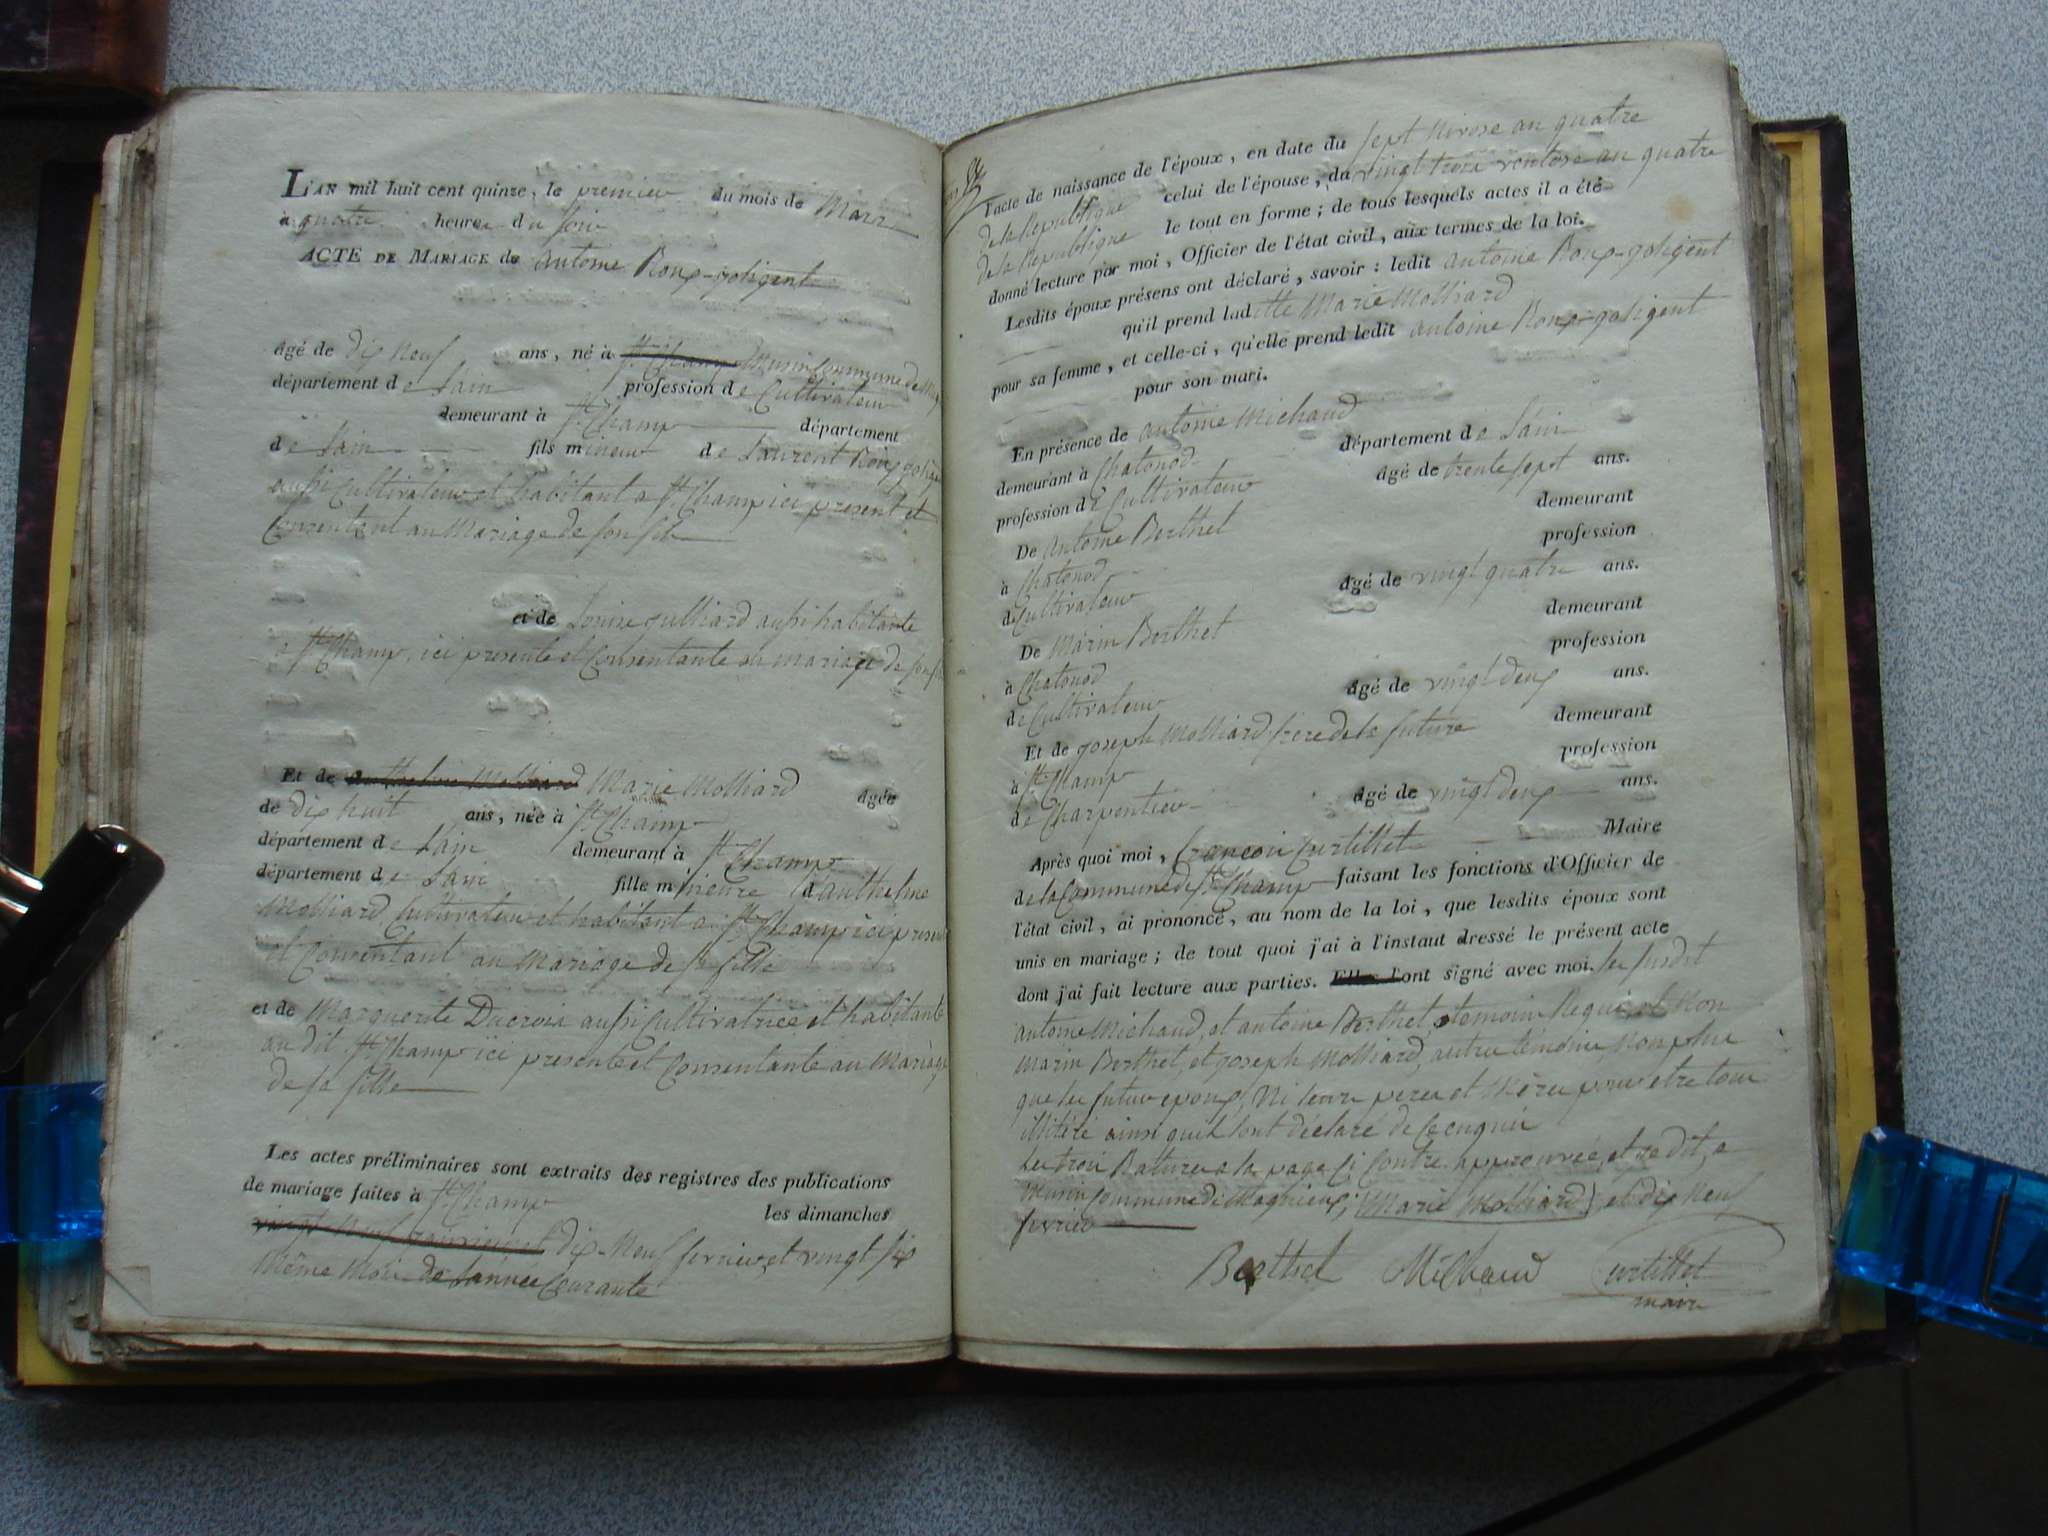 L'AN mil huit cent quinze, le premier du mois de Mars
à quatre heures du soir
ACTE DE MARIAGE de antoine Roux-goligent
âgé de dix neuf ans, né à St. Champ Musin Commune de
département de Lain profession de Cultivateur
demeurant à St. Champ département
de Lain fils mineur de Laurent Roux
aussi Cultivateur et habitant a St. Champ ici present et
Consentant au Mariage de son fils
et de Louise Julliard aussi habitante
a St. Champ, ici presente et Consentante au mariage de son
Et de anthelme Molliard Marie Molliard âgée
de Dix huit ans, née à St. Champ
département de Lain demeurant à St. Champ
département de Lain fille mineure d'anthelme
Molliard Cultivateur et habitant a St. Champ ici
et Consentant au Mariage de sa fille
et de Marguerite Ducrois aussi Cultivatrice et habitante
au dit St. Champ ici presente et Consentante au Mariage
de sa fille
Les actes préliminaires sont extraits des registres des publications
de mariage faites à St. Champ les dimanches
vingt Neuf janvier et dix-Neuf fevrier, et vingt six
même Mois de Lannée Courante
l'acte de naissance de l'époux, en date du sept Nivose an quatre
de la Republique celui de l'épouse, du vingt trois ventose an quatre
de la Republique le tout en forme; de tous lesquels actes il a été
donné lecture par moi, Officier de l'état civil, aux termes de la loi.
Lesdits époux présens ont déclaré, savoir: ledit antoine Roux-goligent
qu'il prend laditte Marie Molliard
pour sa femme, et celle-ci, qu'elle prend ledit antoine Roux-goligent
pour son mari.
En présence de antoine Michaud
demeurant à Chatonod département de Lain
profession de Cultivateur âgé de trente sept ans.
De antoine Berthet demeurant
à Chatonod profession
de Cultivateur âgé de vingt quatre ans.
De Marin Berthet demeurant
à Chatonod profession
de Cultivateur âgé de vingt deux ans.
Et de joseph Molliard frere de la future demeurant
à St. Champ profession
de Charpentier âgé de vingt deux ans.
Après quoi moi, François Curtillet Maire
de la Commune de St. Champ faisant les fonctions d'Officier de
l'état civil, ai prononcé, au nom de la loi, que lesdits époux sont
unis en mariage; de tout quoi j'ai à l'instant dressé le présent acte
dont j'ai fait lecture aux parties. l'ont signé avec moi. les susdit
antoine Michaud, et antoine Berthet, temoin Requis et Non
Marin Berthet, et joseph Molliard, autres temoins Non plus
que les futur epoux, Ni leurs peres et Mères pour etre tous
illitéré ainsi quils l'ont déclaré de Ce enquis
Les trois Ratures a la page Ci Contre approuvée, et
Musin Commune de Magnieux; Marie Molliard, et dix Neuf
fevrier
Berthet Michaud Curtillet
maire